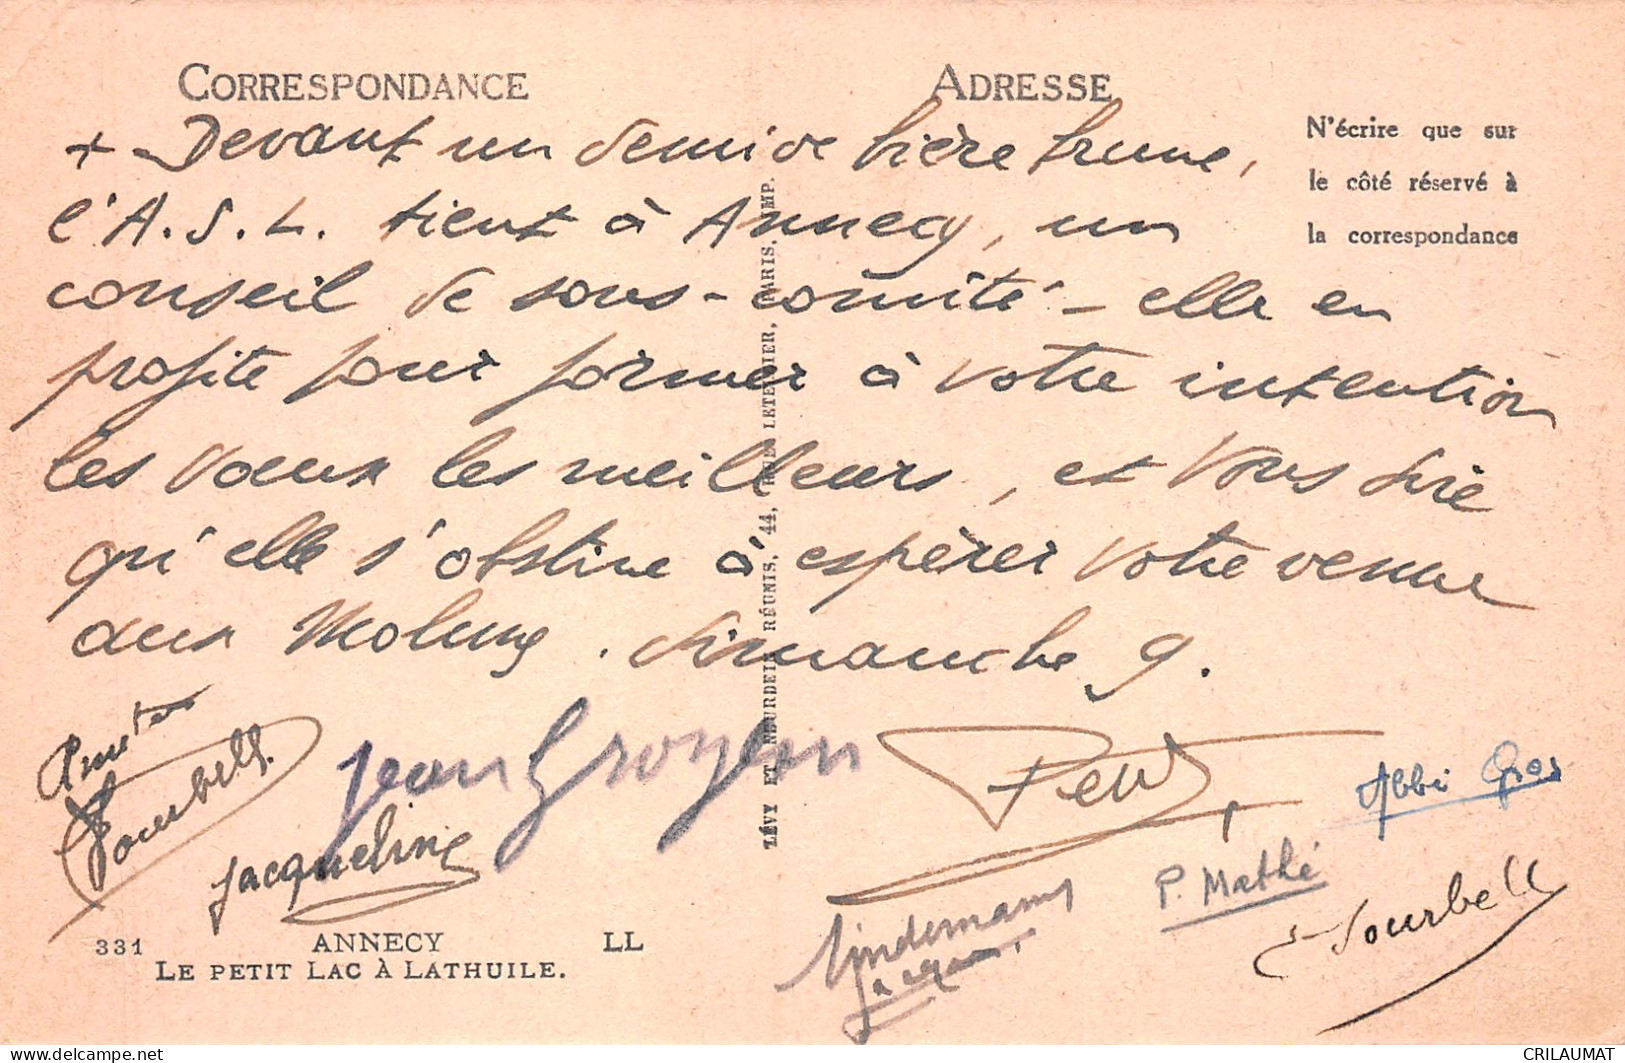 CORRESPONDANCE
ADRESSE
N'écrire que sur
le côté réservé à
la correspondance
+ Devant un demi de bière brune,
l'A.S.L. tient à Annecy, un
conseil de sous-comité - elle en
profite pour former à votre intention
les vœux les meilleurs, et vous dire
qu'elle s'obstine à espérer votre venue
aux dimanche 9.
Tourbell
Jean
Jacqueline
Petit
Abbé Gros
P. Mathé
Lindemann
Jacques
Tourbell
LÉVY ET NEURDEIN RÉUNIS, 44, RUE LETELLIER, PARIS, IMP.
331 ANNECY LL
LE PETIT LAC À LATHUILE.
delcampe.net
CRILAUMAT